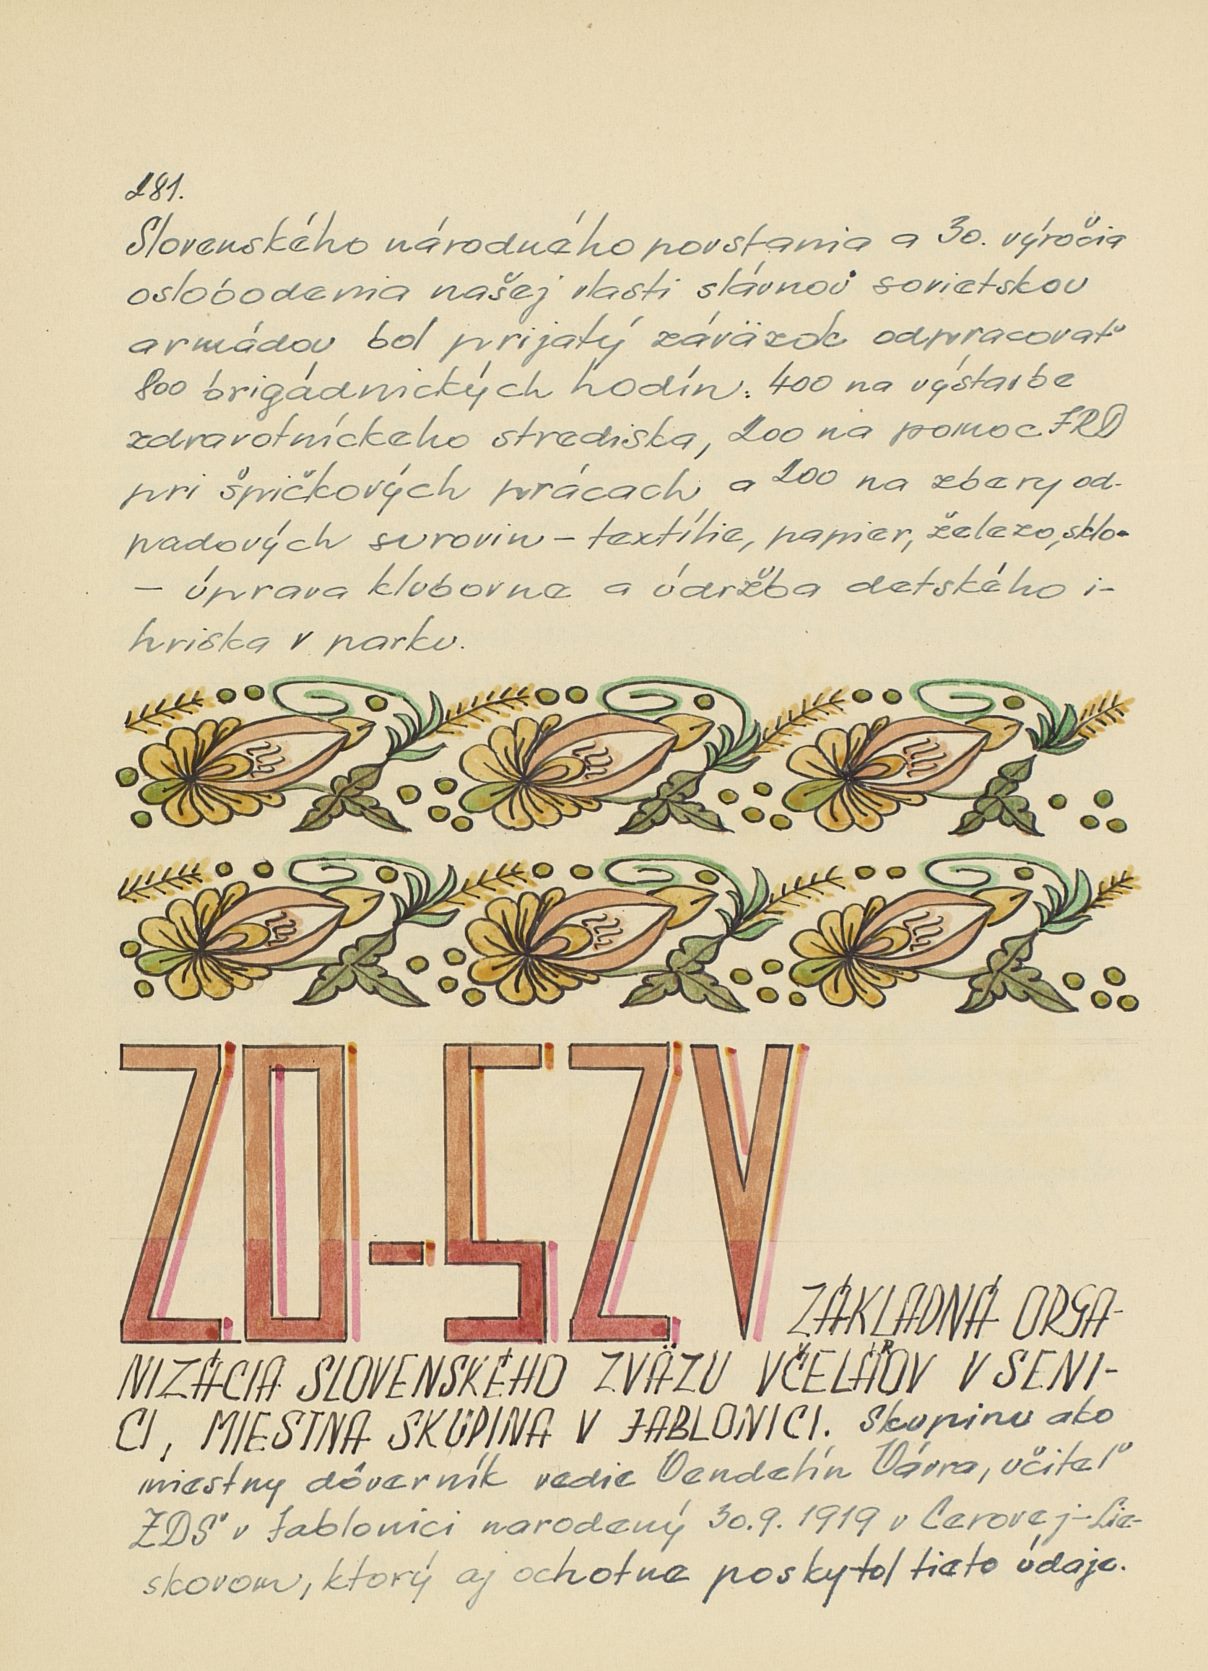 281.
Slovenského národného povstania a 30. výročia
oslobodenia našej vlasti slávnou sovietskou
armádou bol prijatý záväzok odpracovať
800 brigádnických hodín: 400 na výstavbe
zdravotníckeho strediska, 200 na pomoc JRD
pri špičkových prácach, a 200 na zbery od-
padových surovin – textílie, papier, železo, sklo-
– úprava klubovne a údržba detského i-
hriska v parku.
ZO-SZV ZÁKLADNÁ ORGA-
NIZÁCIA SLOVENSKÉHO ZVÄZU VČELÁROV V SENI-
CI, MIESTNA SKUPINA V JABLONICI. Skupinu ako
miestny dôverník vedie Vendelín Vávra, učiteľ
ZDŠ v Jablonici narodený 30.9.1919 v Cerovej-Lie-
skovom, ktorý aj ochotne poskytol tieto údaje.